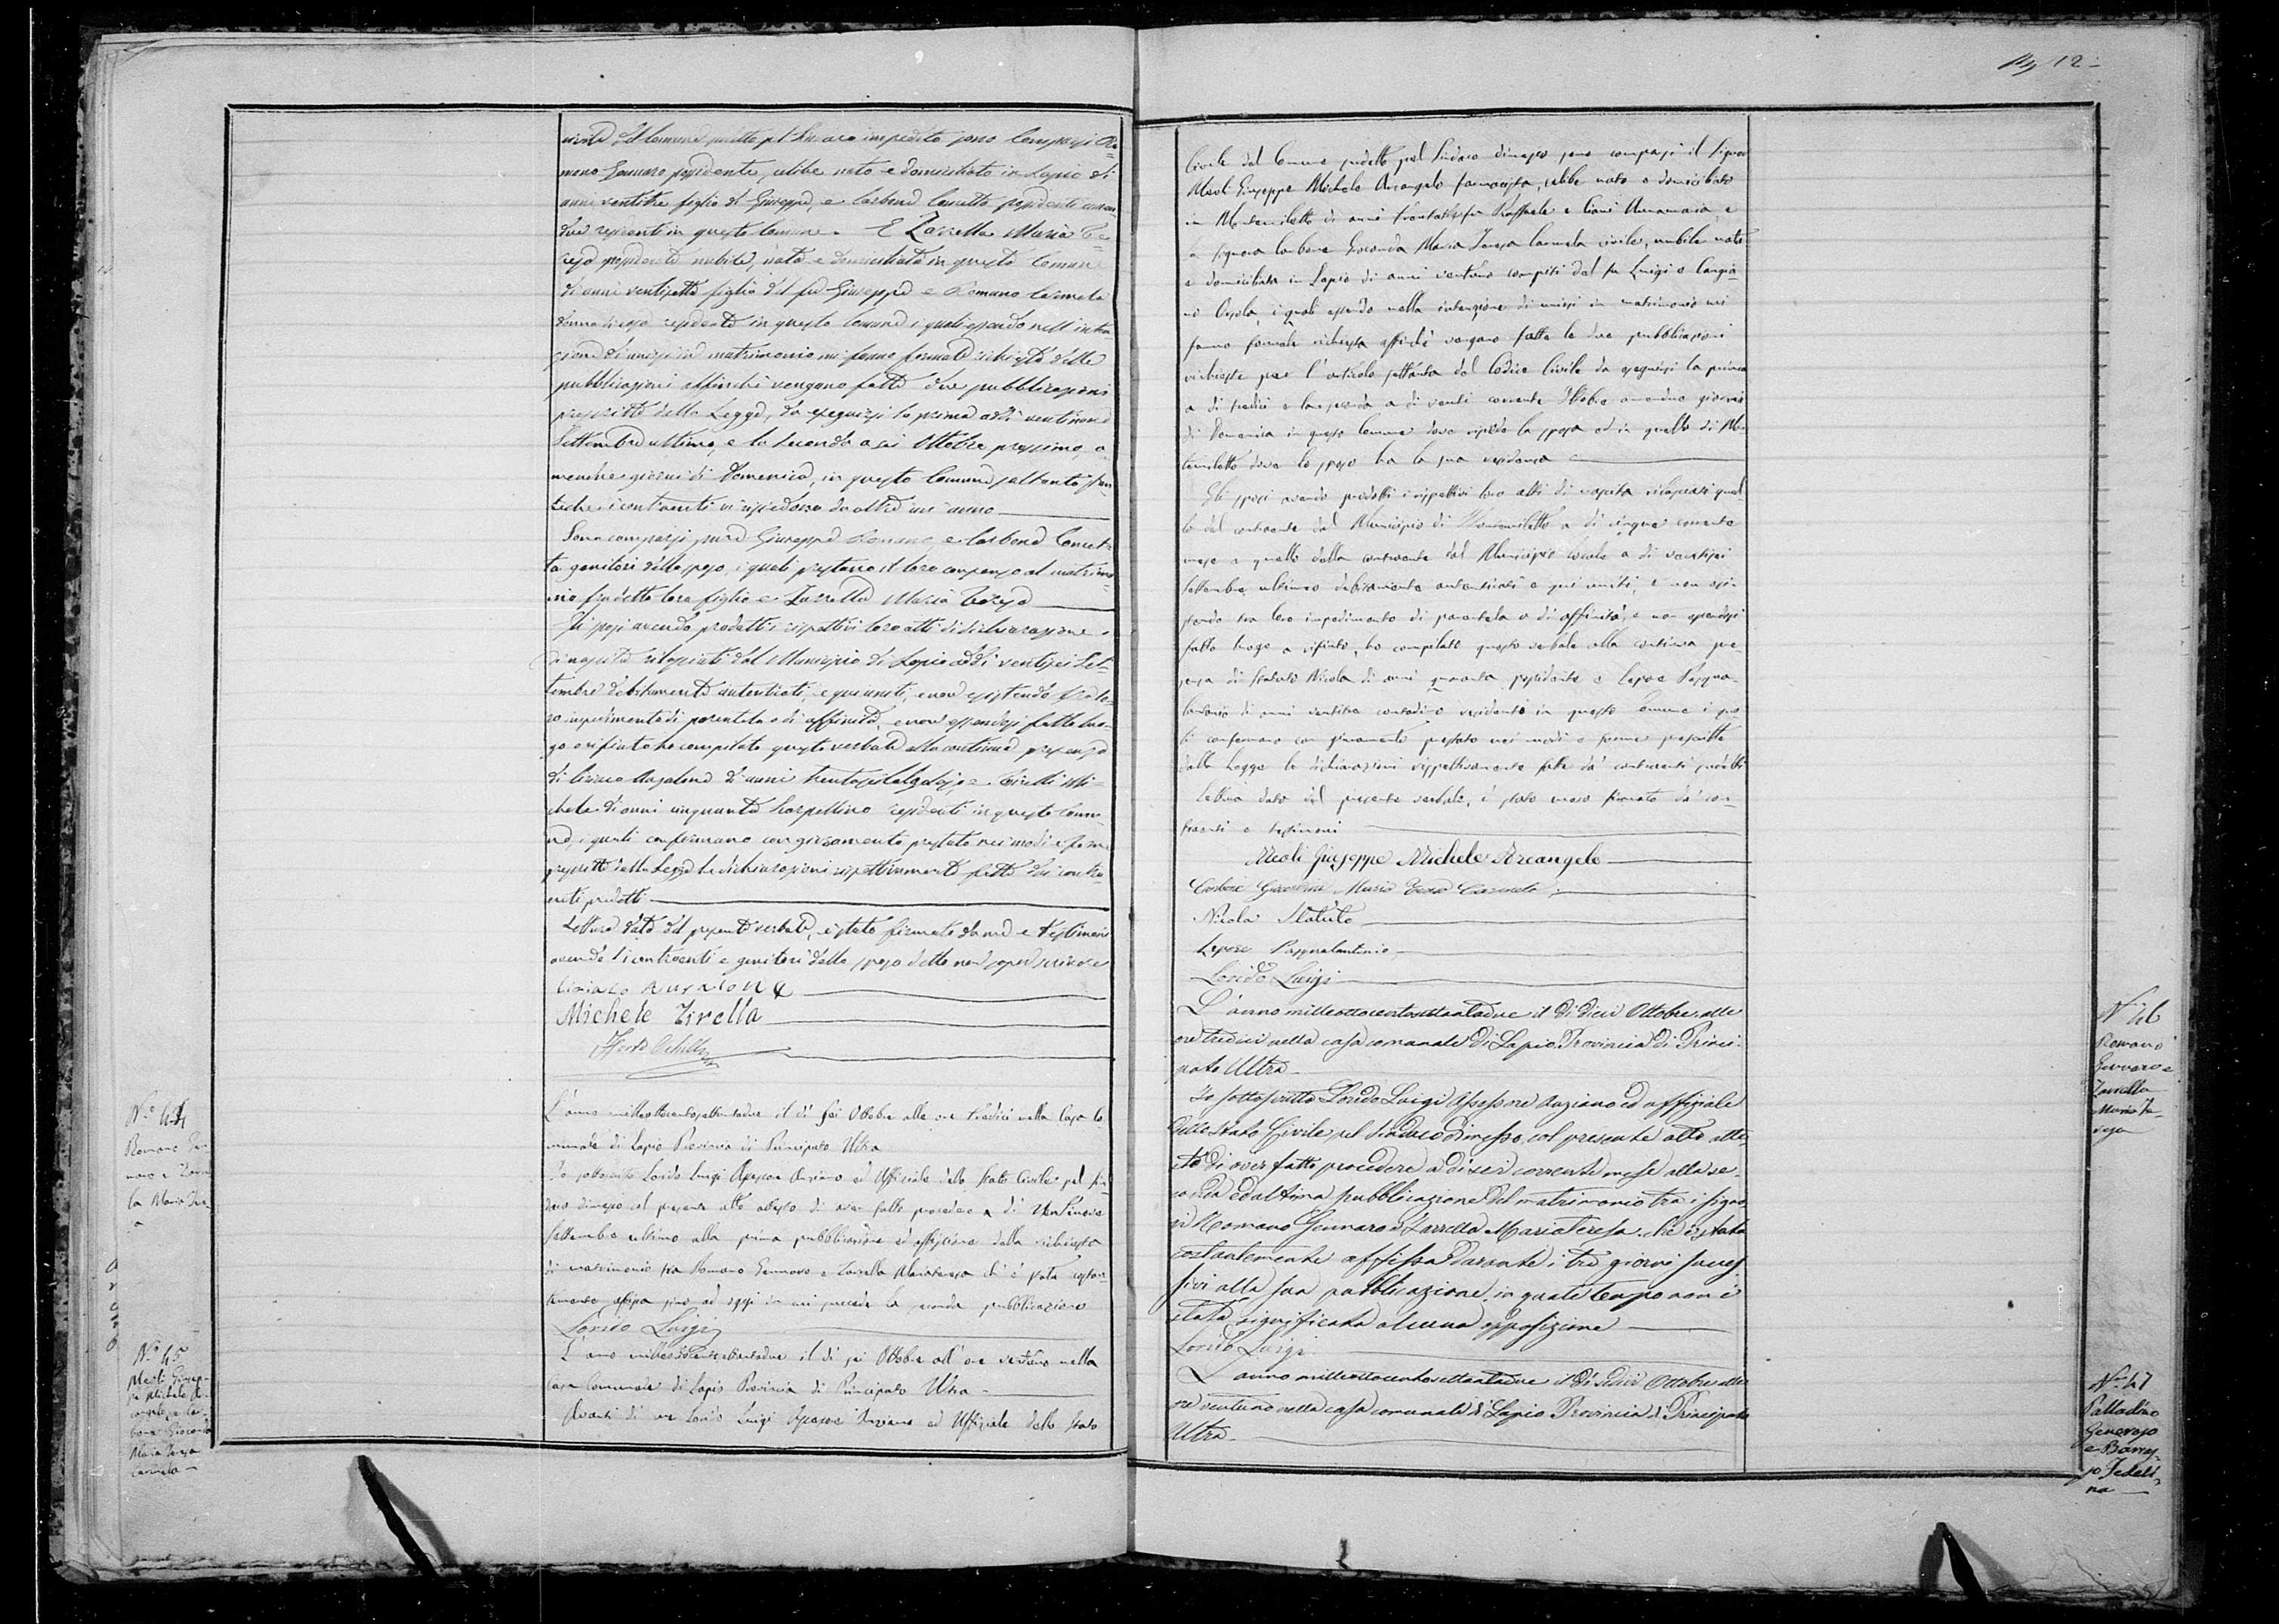 civile del Comune suddetto pel Sindaco impedito sono comparsi Ro=
mano Gennaro possidente, celibe nato e domiciliato in Lapio di
anni ventitre figlio di Giuseppe, e Carbone Concetta possidenti amen-
due residenti in questo Comune. E Zarrella Maria Te=
resa possidente nubile, nata e domiciliata in questo Comune
di anni ventisette figlia del fu Giuseppe e Romano Carmela
donna di casa residente in questo Comune i quali essendo nell'inten
zione di unirsi in matrimonio mi fanno formale richiesta delle
pubblicazioni affinché vengano fatte due pubblicazioni
prescritte dalla Legge, da eseguirsi la prima addì ventinove
Settembre ultimo, e la seconda a sei Ottobre prossimo, a-
mendue giorni di Domenica, in questo Comune soltanto stan-
teché i contraenti vi risiedono da oltre un anno
Sono comparsi pure Giuseppe Romano e Carbone Concet=
ta genitori dello sposo, i quali prestano il loro consenso al matrimo=
nio fra detto loro figlio e Zarrella Maria Teresa
Gli sposi avendo prodotti i rispettivi loro atti di dichiarazione
di nascita rilasciati dal Municipio di Lapio addì ventisei Set=
tembre debitamente autenticati, e qui uniti, e non esistendo fra lo=
ro impedimento di parentela o di affinità, e non essendosi fatto luo-
go a rifiuto ho compilato questo verbale alla continua presenza
di Ciriaco Anzalone di anni trentasei calzolajo e Tirella Mi=
chele di anni cinquanta scarpellino residenti in questo Comu-
ne, i quali confermano con giuramento prestato nei modi e forme
prescritte dalla Legge le dichiarazioni rispettivamente fatte dai contra=
enti predetti
Lettura data del presente verbale, è stato firmato da me e testimoni
avendo i contraenti e genitori dello sposo detto non saper scrivere
Ciriaco Anzalone
Michele Tirella
N.° 44
Romano Gen
naro e Zarrel
la Maria Tere
a
L'anno milleottocentosettantadue il dì sei Ottobre alle ore tredici nella Casa Co
munale di Lapio Provincia di Principato Ultra
Io sottoscritto Lorido Luigi Assessore Anziano ed Uffiziale dello Stato Civile pel Sin
daco dimesso col presente atto attesto di aver fatto procedere a dì ventinove
Settembre ultimo alla prima pubblicazione ed affissione della richiesta
di matrimonio fra Romano Gennaro e Zarrella Mariateresa ch'è stata costan-
temente affissa fino ad oggi in cui precede la seconda pubblicazione
Lorido Luigi
N.° 45
Meoli Giusep-
pe Michele Ar-
cangelo e Car-
bone Gioconda
Maria Teresa
Carmela
L'anno milleottocentosettantadue il dì sei Ottobre all'ore ventuno nella
Casa Comunale di Lapio Provincia di Principato Ultra
Avanti di me Lorido Luigi Assessore Anziano ed Uffiziale dello Stato
12
Civile del Comune sudetto pel Sindaco dimesso sono comparsi il Signor
Meoli Giuseppe Michele Arcangelo farmacista, celibe nato e domiciliato
in Montemiletto di anni fu Raffaele e Annamaria, e
la signora Carbone Gioconda Maria Teresa Carmela civile, nubile nata
e domiciliata in Lapio di anni ventuno compiti dal fu Luigi e Cangia-
no Orsola, i quali essendo nella intenzione di unirsi in matrimonio mi
fanno formale richiesta affinché vengano fatte le due pubblicazioni
richieste per l'articolo settanta del Codice Civile da eseguirsi la prima
a dì tredici e la seconda a dì venti corrente Ottobre amendue giorni
di Domenica in questo Comune dove risiede la sposa ed in quello di Mon
temiletto dove lo sposo ha la sua residenza
Gli sposi avendo prodotti i rispettivi loro atti di nascita rilasciati quel
lo del contraente dal Municipio di Montemiletto a dì cinque corrente
mese e quello della contraente dal Municipio locale a dì ventisei
Settembre ultimo debitamente autenticati e qui uniti, e non esi-
stendo tra loro impedimento di parentela o di affinità, e non essendosi
fatto luogo a rifiuto, ho compilato questo verbale alla continua pre-
senza di Statuto Nicola di anni quaranta possidente e Lepore Pasqua-
lantonio di anni ventitre contadino residenti in questo Comune i qua
li confermano con giuramento prestato nei modi e forme prescritte
dalla Legge le dichiarazioni rispettivamente fatte da' contraenti sudetti
Lettura data del presente verbale, è stato meco firmato da' con-
traenti e testimoni
Meoli Giuseppe Michele Arcangelo
Carbone Gioconda Maria Teresa Carmela
Nicola Statuto
Lepore Pasqualantonio
Lorido Luigi
N.° 46
Romano
Gennaro e
Zarrella
Maria Te-
resa
L'anno milleottocentosettantadue il dì dieci Ottobre alle
ore tredici nella casa comunale di Lapio Provincia di Princi-
pato Ultra
Io sottoscritto Lorido Luigi Assessore Anziano ed uffiziale
dello Stato Civile pel Sindaco dimesso, col presente atto atte-
sto di aver fatto procedere a dì sei corrente mese alla se-
conda ed ultima pubblicazione del matrimonio tra i signo
ri Romano Gennaro e Zarrella Mariateresa che è stata
costantemente affissa durante i tre giorni succes
sivi alla sua pubblicazione, in quale tempo non è
stata significata alcuna opposizione
Lorido Luigi
N.° 47
Palladino
Generoso
e Barras-
so Fedeli-
na
L'anno milleottocentosettantadue il dì sedici Ottobre alle
ore ventuno nella casa comunale di Lapio Provincia di Principato
Ultra